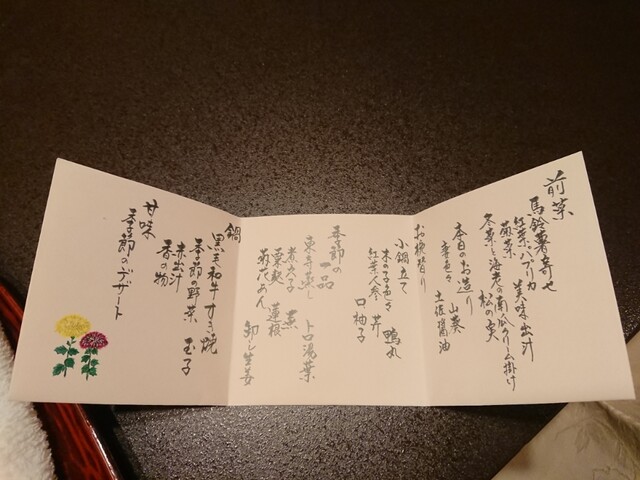 前菜
馬鈴薯寄せ
紅葉パプリカ 美味出汁
菊菜
冬菜と海老の南瓜クリーム掛け
松の実
本日のお造り
辛色々 山葵
土佐醤油
お椀替り
小鍋立て
木の子色々 鴨丸
紅葉人参 芹
口柚子
季節の一品
東寺蒸し トロ湯葉
煮穴子
粟麩 蓮根
菊花あん 卸し生姜
鍋
黒毛和牛すき焼
季節の野菜 玉子
赤出汁
香の物
甘味
季節のデザート